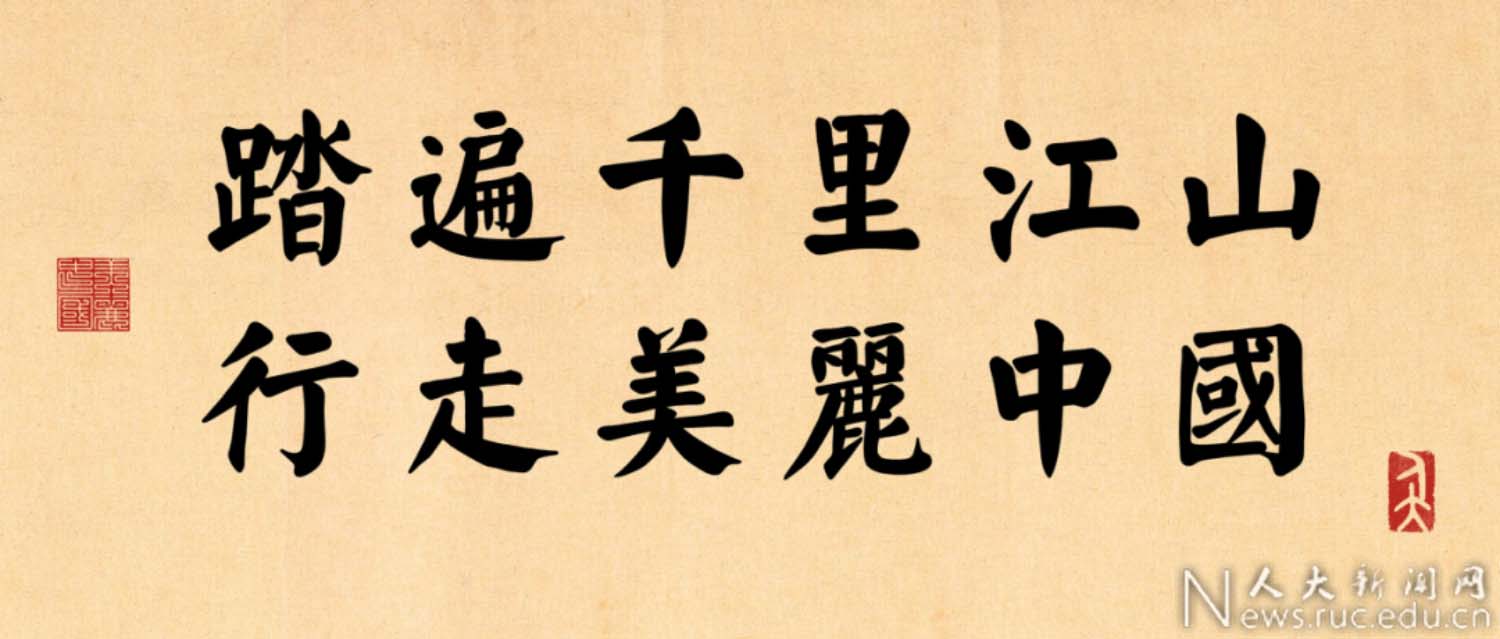 踏遍千里江山
行走美麗中國
人大
人大新闻网
News.ruc.edu.cn